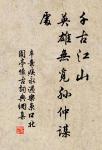 千古江山
英雄無覓孫仲謀
處
辛棄疾永遇樂京口北
固亭懷古